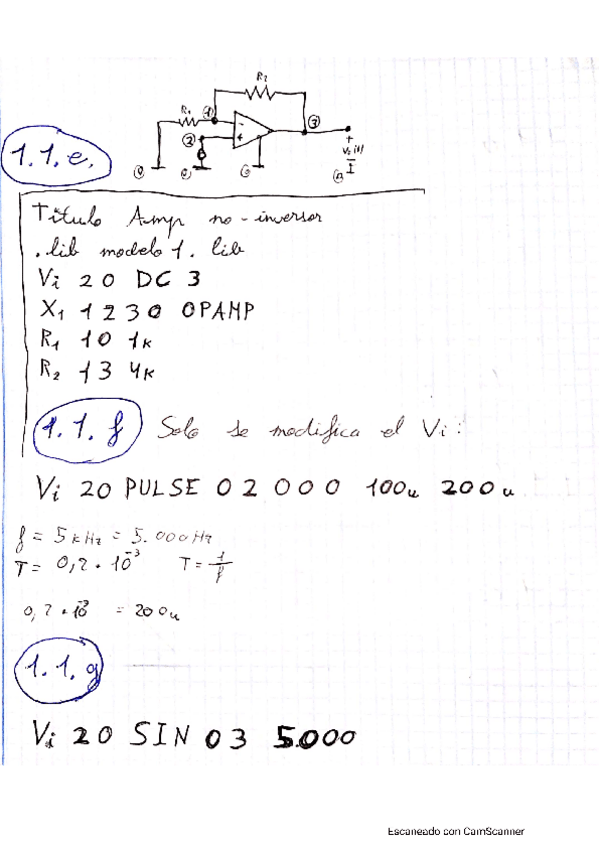 R2
R1 1
2 - 3
+ +
1.1.e. V2(t)
0 0 0 0 -
Titulo Amp no-inversor
.lib modelo1.lib
Vi 2 0 DC 3
X1 1 2 3 0 OPAMP
R1 1 0 1k
R2 1 3 4k
1.1.f Solo se modifica el Vi:
Vi 20 PULSE 0 2 0 0 0 100u 200u
f = 5kHz = 5.000Hz
T = 0,2 · 10^-3 T = 1/f
0,2 · 10^-3 = 200u
1.1.g
Vi 20 SIN 0 3 5.000
Escaneado con CamScanner